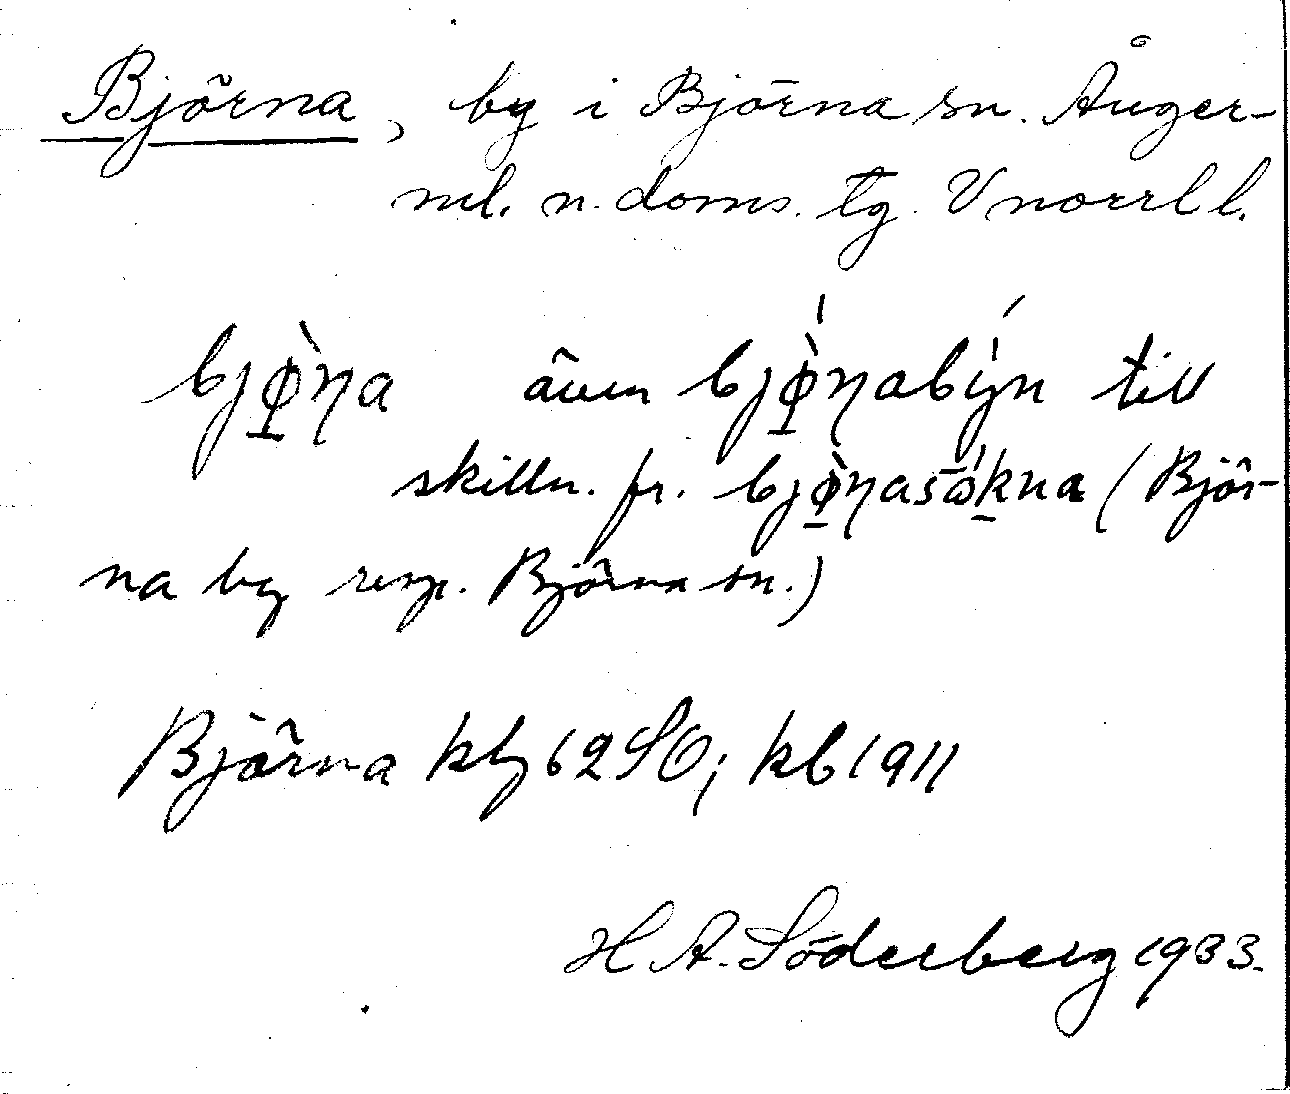 Björna, by i Björna sn. Ånger-
ml. n. doms. tg. Vnorrl l.
bjø̀ɳa även bjø̀ɳabýn till
skilln. fr. bjø̀ɳasōkna (Björ-
na by resp. Björna sn.)
Björna kby 62 SO; kb 1911
H A. Söderberg 1933.